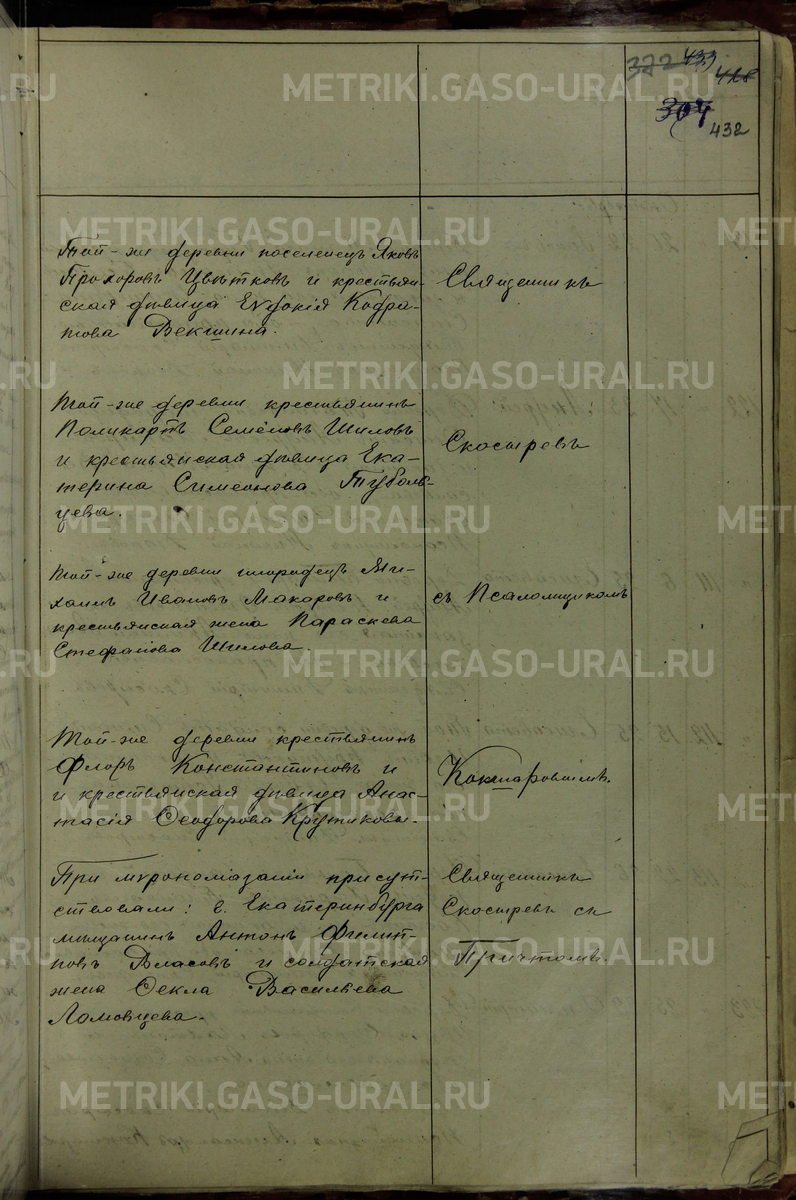 322 433
428
304
432
Той-же деревни поселенецъ Яковъ
Прохоровъ Цвѣтковъ и крестьян-
ская дѣвица Евдокія Кодра-
това Векшина.
Священникъ
Той-же деревни крестьянинъ
Поликарпъ Семёновъ Шиловъ
и крестьянская дѣвица Ека-
терина Симеонова Туболь-
цева.
Скосыревъ
Той-же деревни Ми-
хаилъ Ивановъ Макаровъ и
крестьянская жена Параскева
Стефанова Шилова.
съ Псаломщикомъ
Той-же деревни крестьянинъ
Флоръ Константиновъ и
и крестьянская дѣвица Анас-
тасія Ѳеодорова Крутикова.
Кокшаровымъ.
При мѵропомазаніи присут-
ствовали: г. Екатеринбурга
мѣщанинъ Антонъ Филип-
повъ Власовъ и солдатская
жена Ѳекла Васильева
Ломовцева.
Священникъ
Скосыревъ съ
Причтомъ.
METRIKI.GASO-URAL.RU